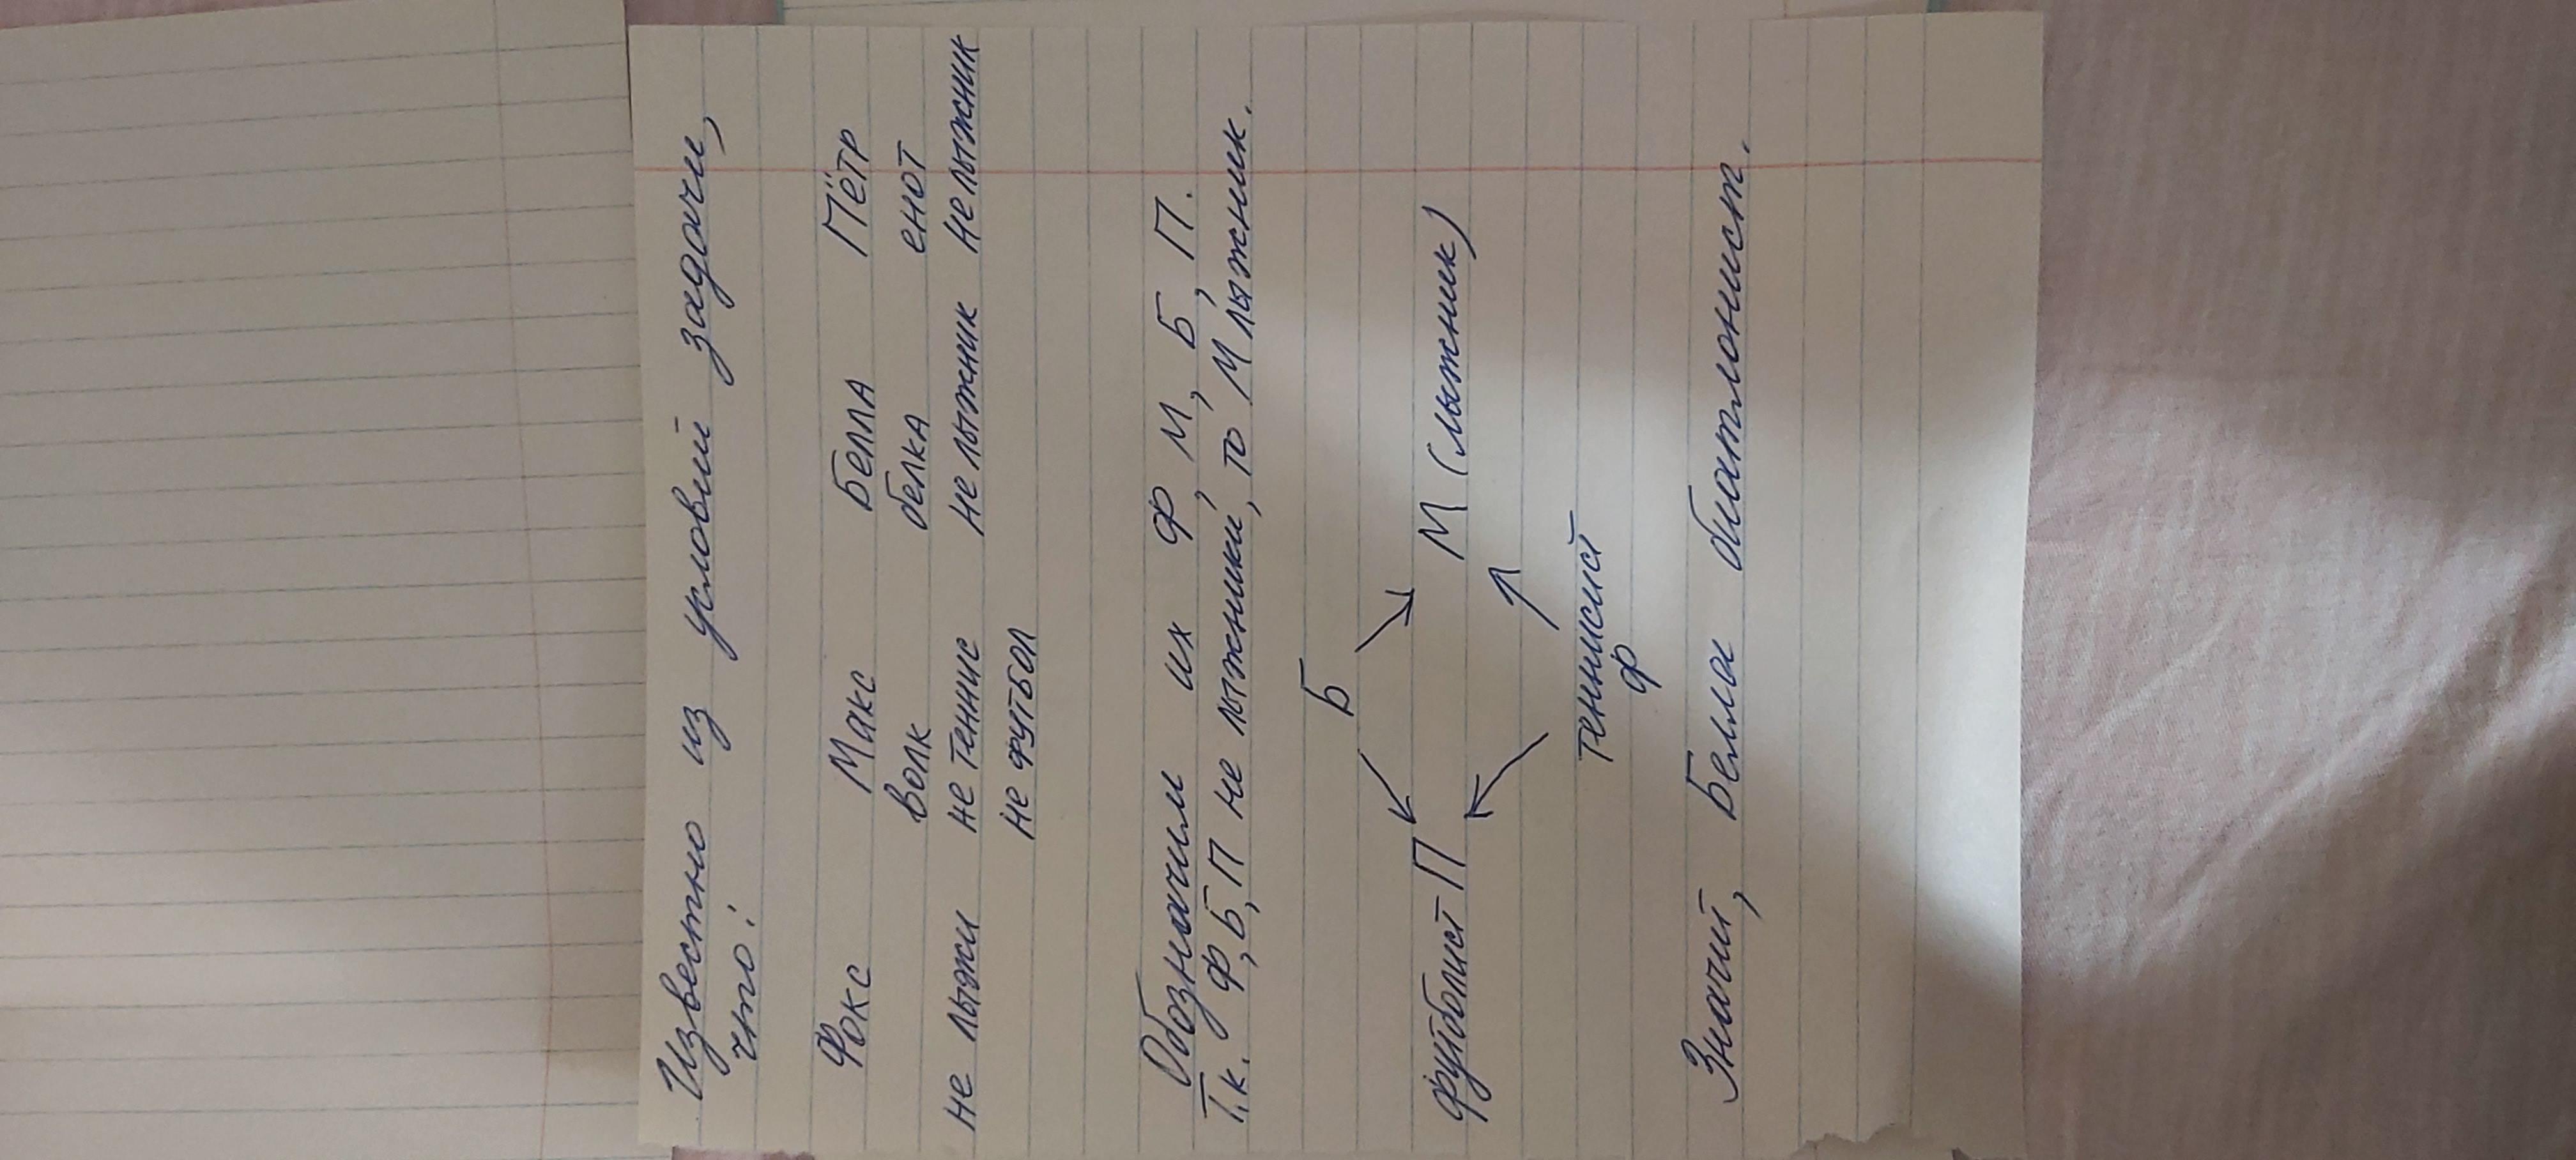 Известно из условий задачи,
что:
Фокс Макс Белла Пётр
волк белка енот
не лыжи не теннис не лыжник не лыжник
не футбол
Обозначим их Ф, М, Б, П.
Т.к. Ф, Б, П не лыжники, то М лыжник.
Б
футболист П М (лыжник)
теннисист
Ф
Значит, Белла биатлонист.